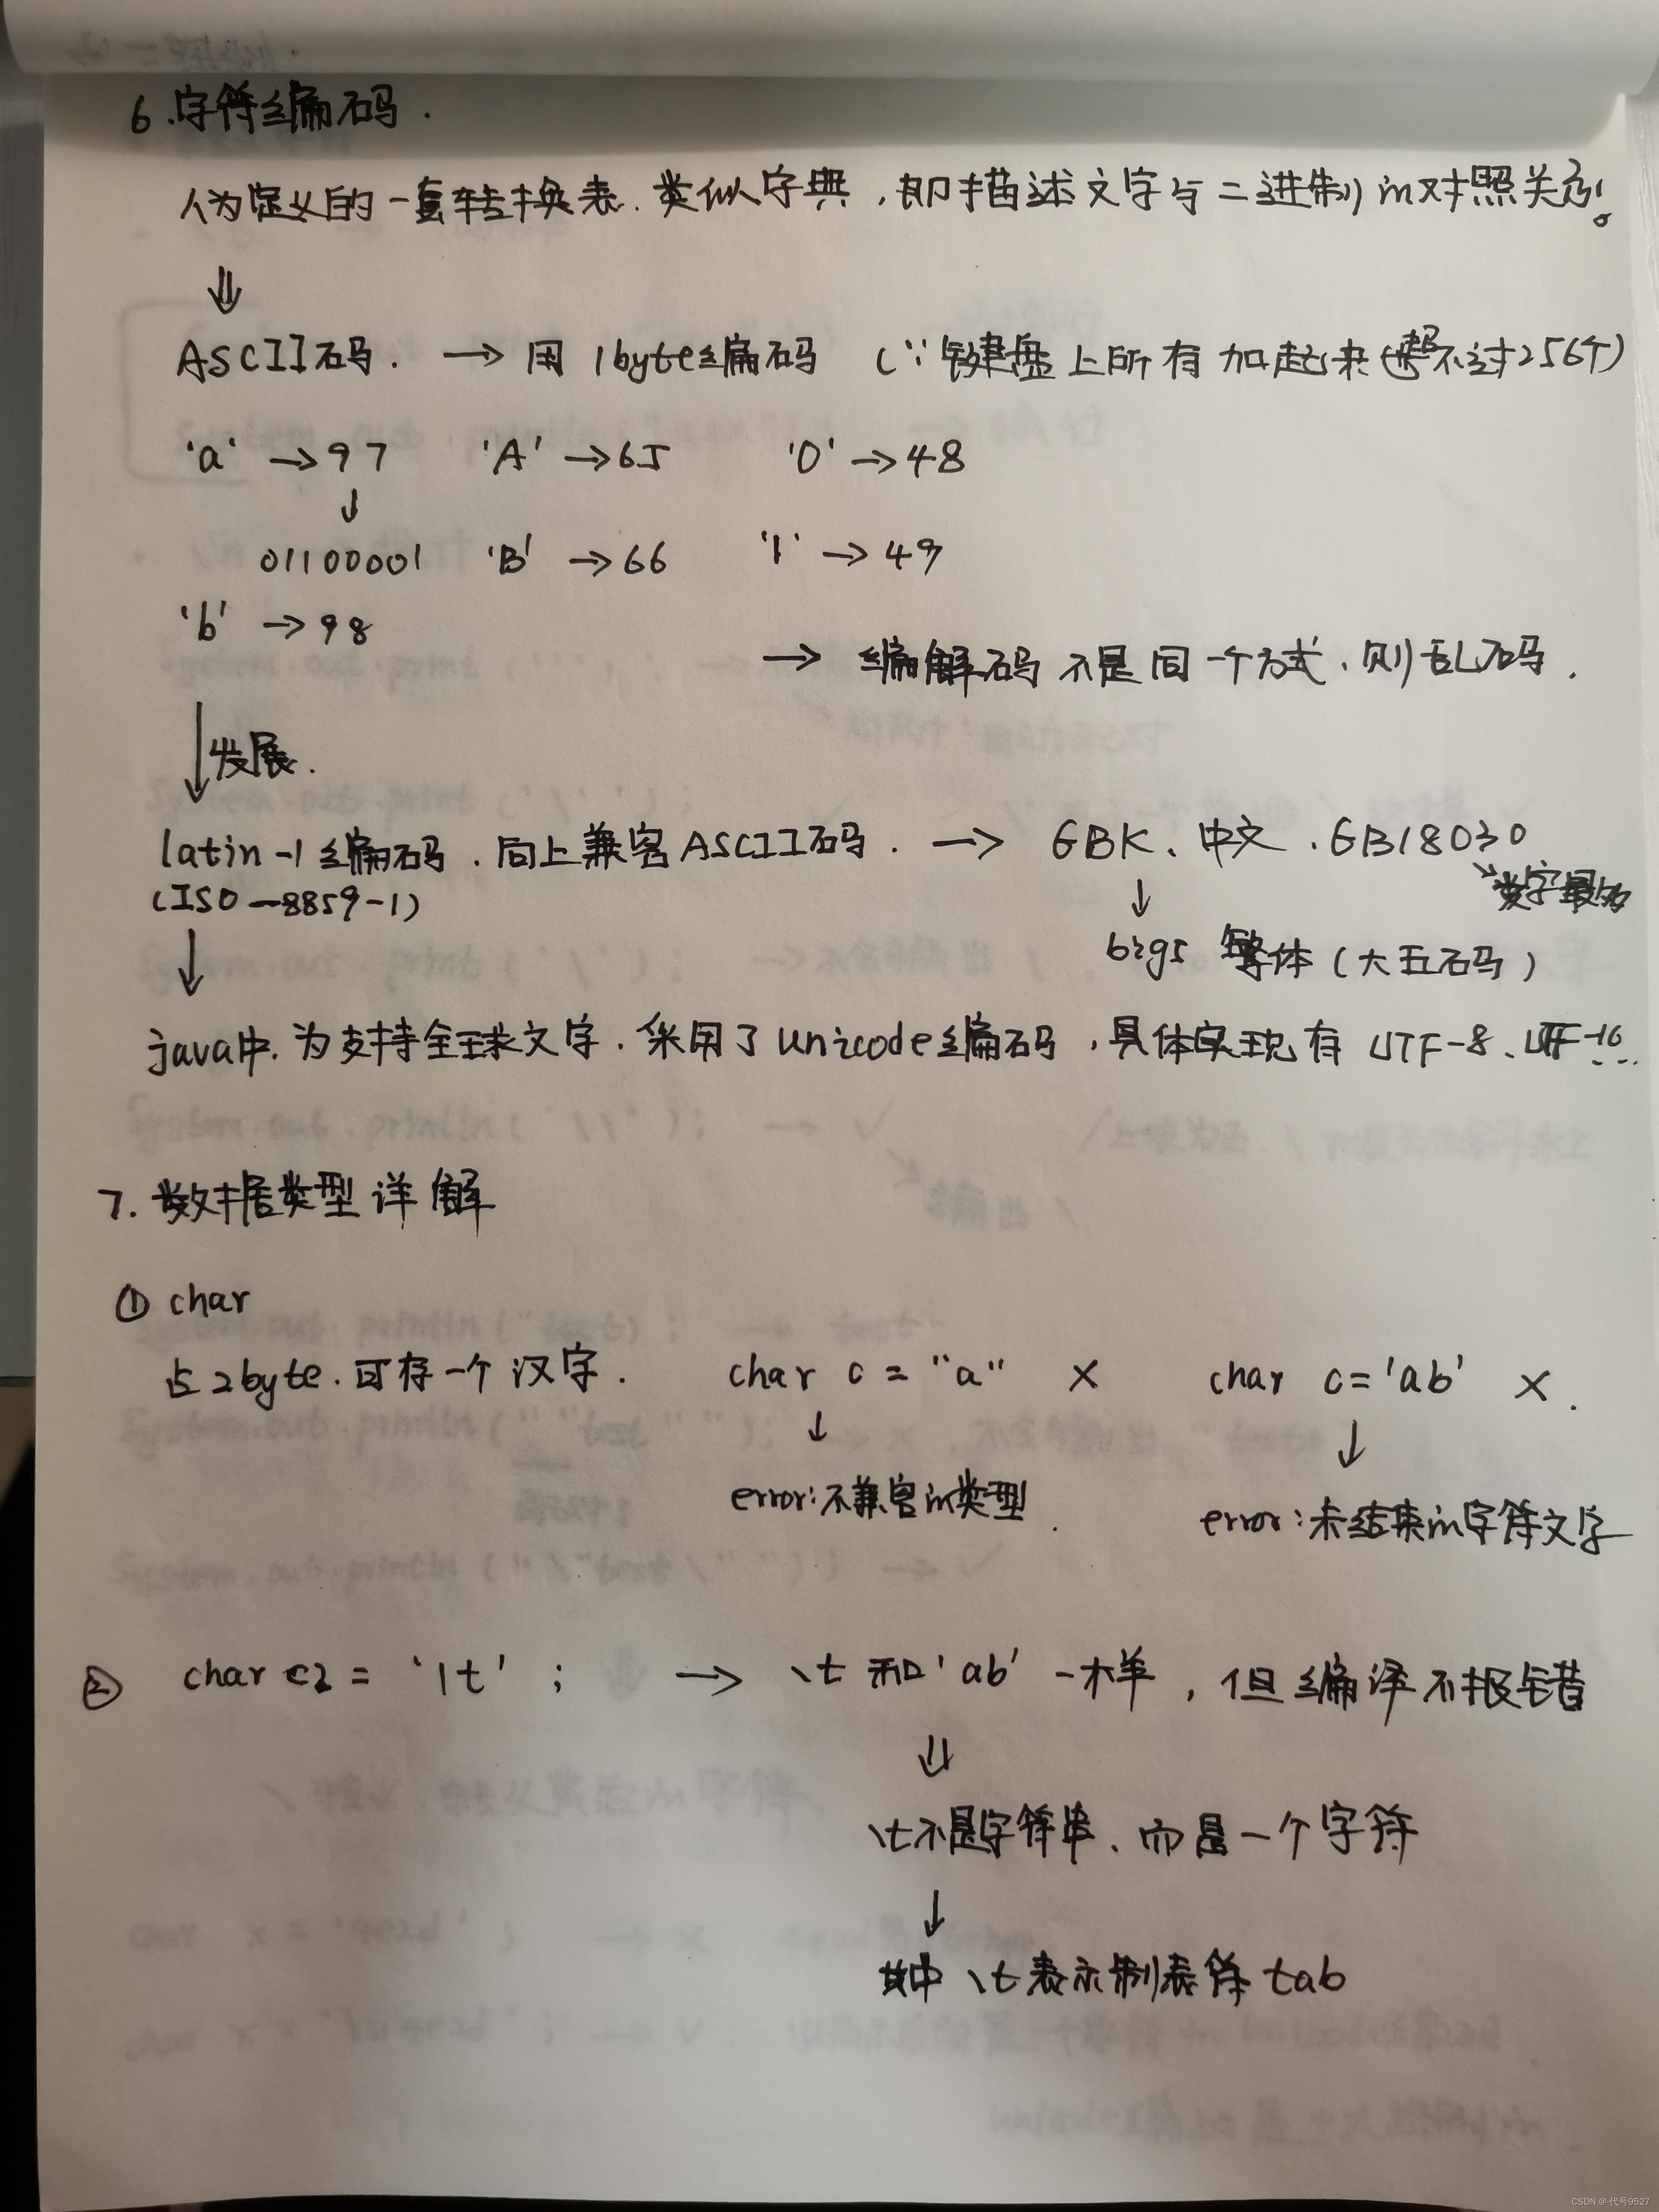 6.字符编码.
人为定义的一套转换表.类似字典,即描述文字与二进制的对照关系。
⇓
ASCII码. → 用1byte编码 (∵键盘上所有加起来也超不过256个)
'a' →97 'A' →65 '0' →48
↓
01100001 'B' →66 '1' →49
'b' →98
→ 编解码不是同一个方式,则乱码.
↓发展.
latin-1编码.向上兼容ASCII码. → GBK、中文.GB18030
(ISO-8859-1) ↓ ↘数字最多
↓ big5 繁体(大五码)
java中.为支持全球文字.采用了unicode编码,具体实现有UTF-8、UTF-16...
7.数据类型详解
① char
占2byte.可存一个汉字. char c = "a" × char c='ab' ×.
↓ ↓
error:不兼容的类型. error:未结束的字符文字
② char c2 = '\t' ; → \t和'ab'一样,但编译不报错
⇓
\t不是字符串、而是一个字符
↓
其中\t表示制表符tab
CSDN @代号9527